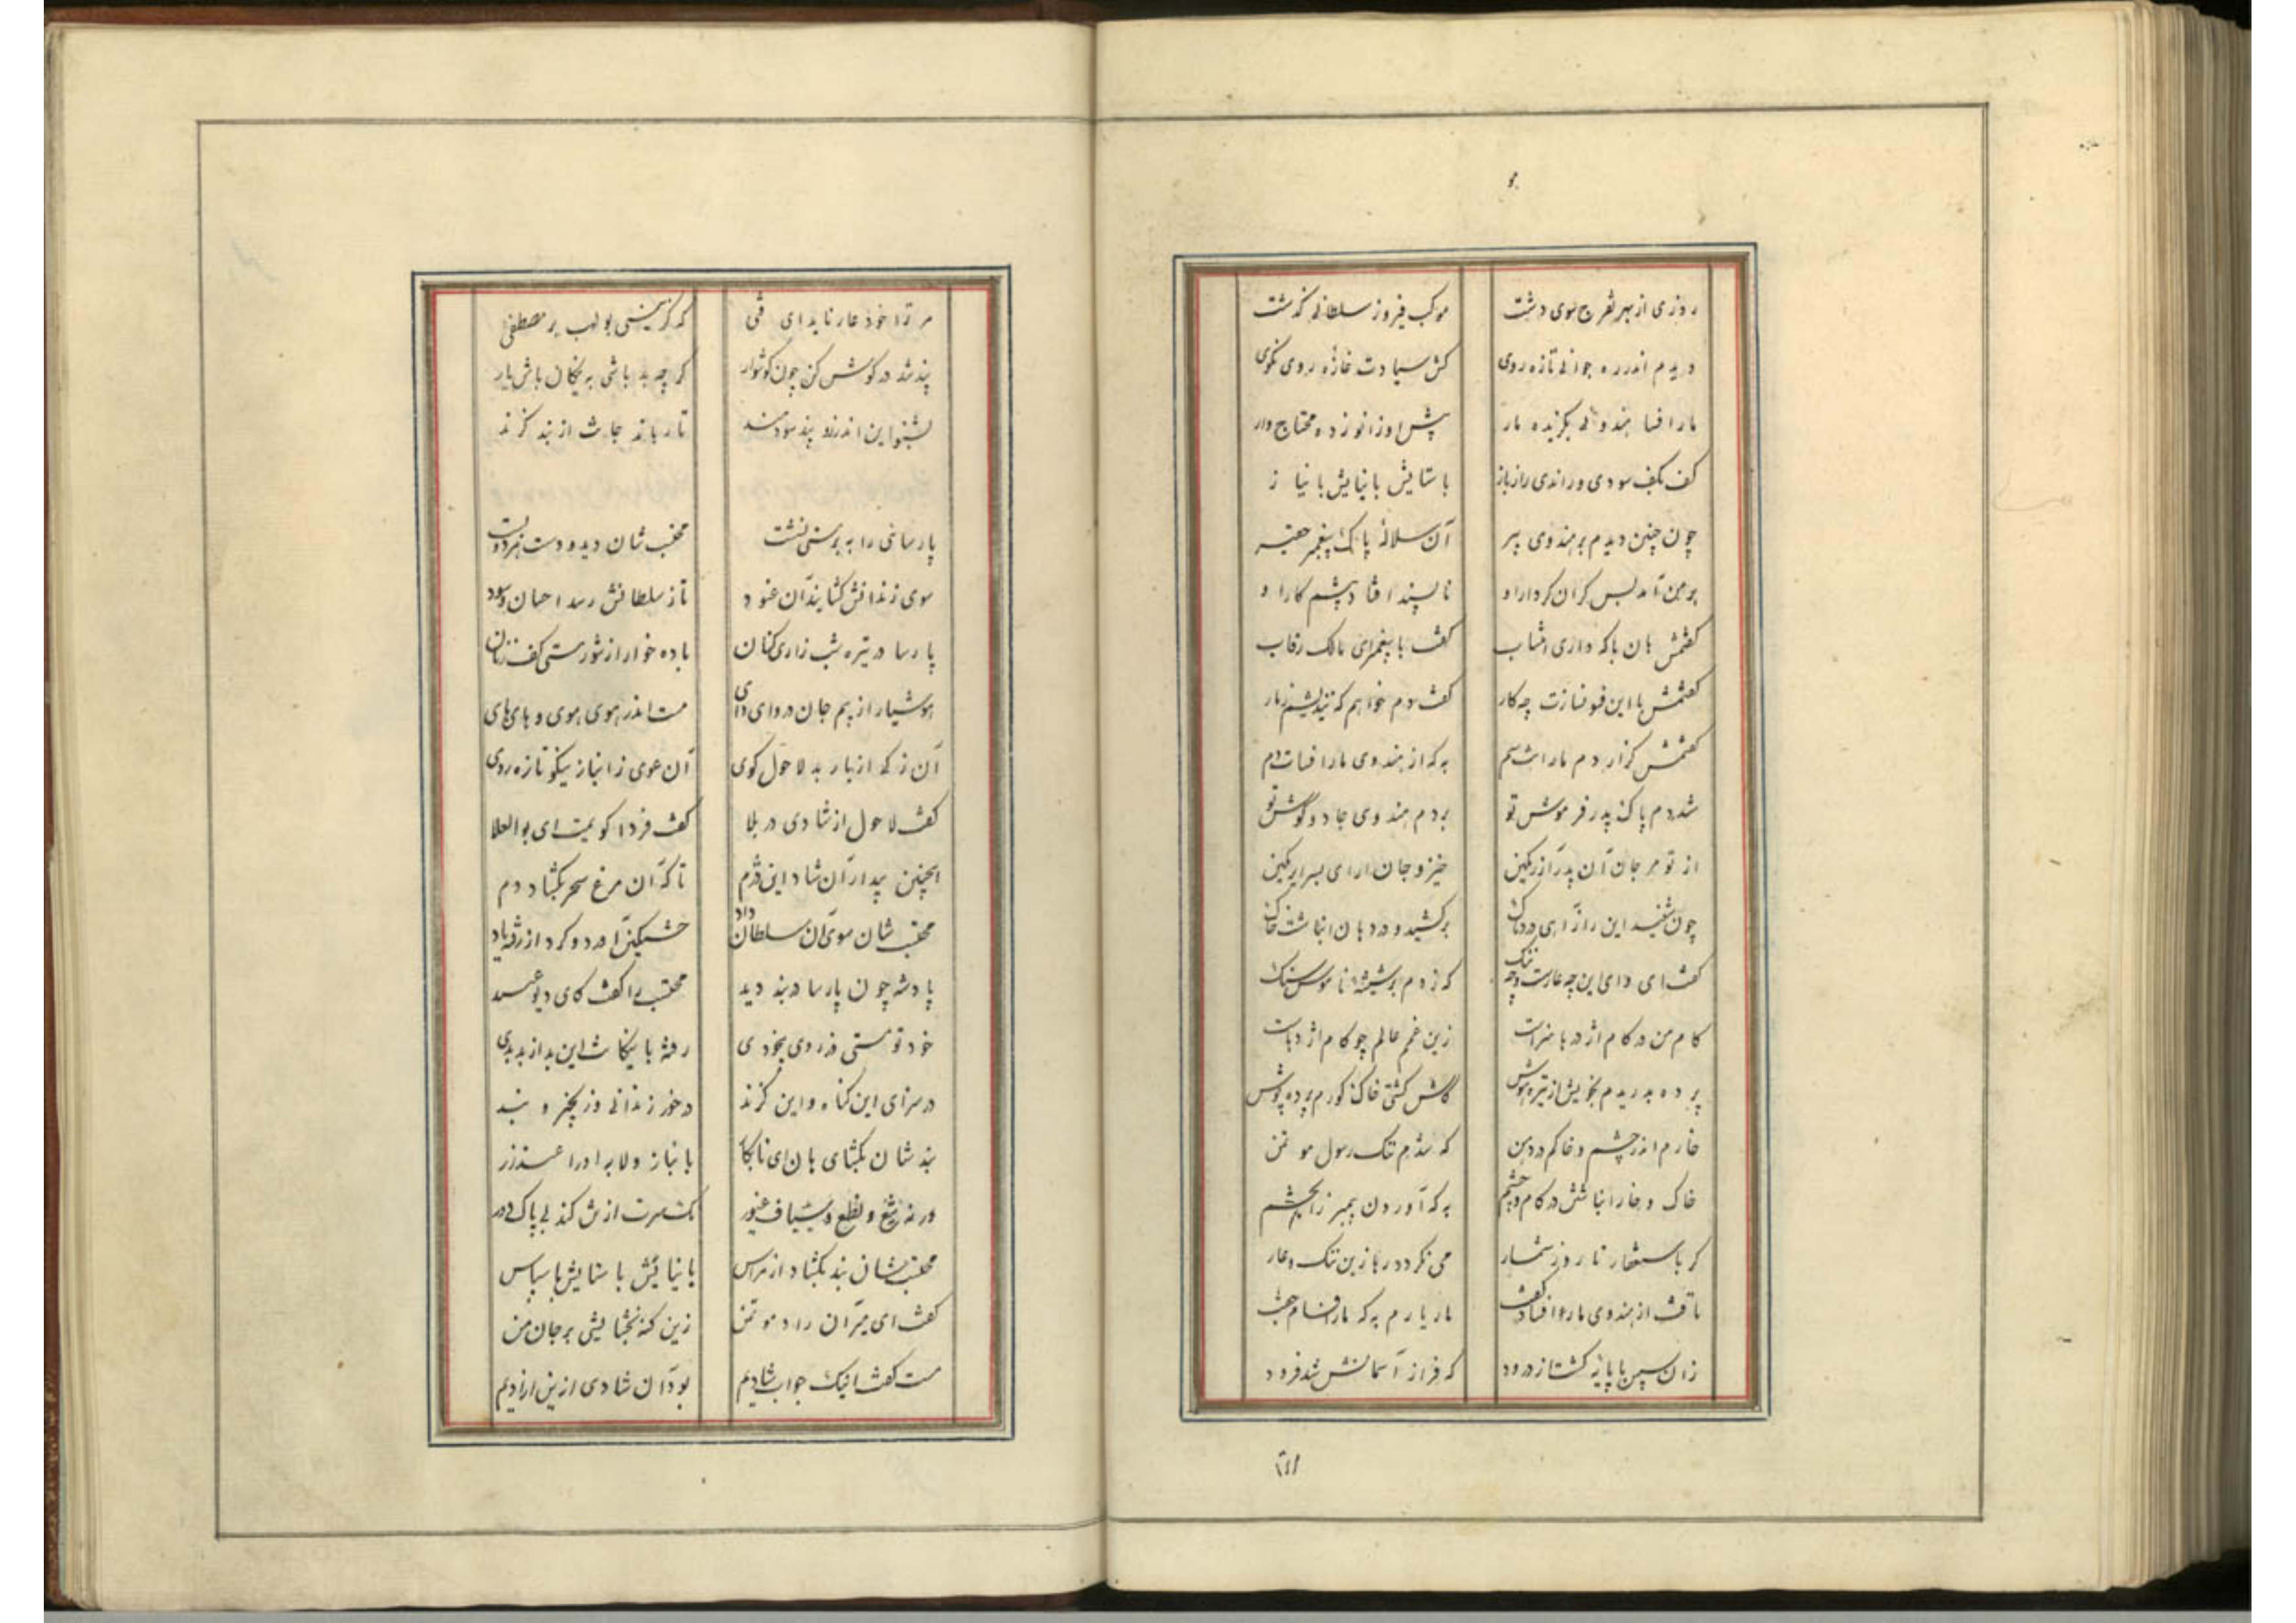 روزی از بهر تفرج سوی دشت موکب فیروز سلطانی گذشت
دیدم اندر ره جوانی تازه روی کش سیادت غازه روی نکوی
مار افسا هندوئی بگزیده مار پیش او زانو زده محتاج وار
کف بکف سودی و راندی راز باز با ستایش با نیایش با نیاز
چون چنین دیدم بر هندوی پیر آن سلاله پاک پیغمبر حقیر
بر من آمد بس گران کردار او ناپسند افتاد پیشم کار او
گفتمش هان با که داری انتساب گفت با پیغمبر ای مالک رقاب
گفتمش با این فسونسازت چه کار گفت مردم خواهم که نندیشم ز مار
گفتمش گزار دم مارانت سم به که از هندوی مار افسات دم
شد دم پاک پدر فرموش تو بر دم هندوی جادو گوش تو
از تو مر جان آن پدر آزرمگین خیز و جان
چون شنید این راز آهی دردناک برکشید و در دهان انباشت خاک
گفت ای وای این چه عارست و چه ننگ که زدم بر شیشه ناموس سنگ
کام من در کام اژدرها سزاست زین غم عالم چو کام اژدهاست
پرده بدریدم بخویش از تیره هوش کاش گشتی خاک گورم پرده پوش
خارم اندر چشم و خاکم در دهن که شدم ننگ رسول مؤتمن
خاک و خار انباشتن در کام و چشم به که آوردن پیمبر را بخشم
گر باستغفار تا روز شمار می نگردد رها زین ننگ و عار
تافت از هندوی مار افسا و گفت مار یارم به که مار افسام جفت
زان سپس با پایه گشتا ز درود که فراز آسمانش شد فرود
مر ترا خود عار ناید ای فتی که گزینی بولهب بر مصطفی
پند شه در گوش کن چون گوشوار گرچه بد باشی به نیکان باش یار
بشنو این اندرز و پند سودمند تا رهاند جانت از بند گزند
پارسائی را به بر مستی نشست محتسب شان دید و دست هر دو بست
سوی زندانش کشانید آن عنود تا ز سلطانش رسد احسان و سود
پارسا در تیره شب زاری کنان باده خوار از شور مستی کف زنان
هوشیار از بیم جان در وای وای مست اندر هوی هوی و های های
آن ز که از بار بد لا حول گوی آن عوی ز انباز نیکو تازه روی
گفت لا حول از شادی در بلا گفت فردا گویمت ای بوالعلا
اینچنین بیدار آن شاد این دژم تا که آن مرغ سحر بگشاد دم
محتسب شان سوی آن سلطان داد خشمگین آورد و کرد از رفته یاد
پادشه چون پارسا در بند دید محتسب را گفت کای دیو عنید
خود تو مستی در روی بیخودی رفته با نیکانت این بد از بدی
در سزای این گناه و این گزند در خور زندانی و زنجیر و بند
بند شان بگشای هان ای نابکار با نیاز و لابه
ورنه تیغ و نطع و سیاف غیور
محتسب شان بند بگشاد از هراس با نیایش با ستایش با سپاس
گفت ای میران راد مؤتمن زین گنه بخشایشی بر جان من
مست گفت اینک جواب شادیم بود آن شادی ازین آزادیم